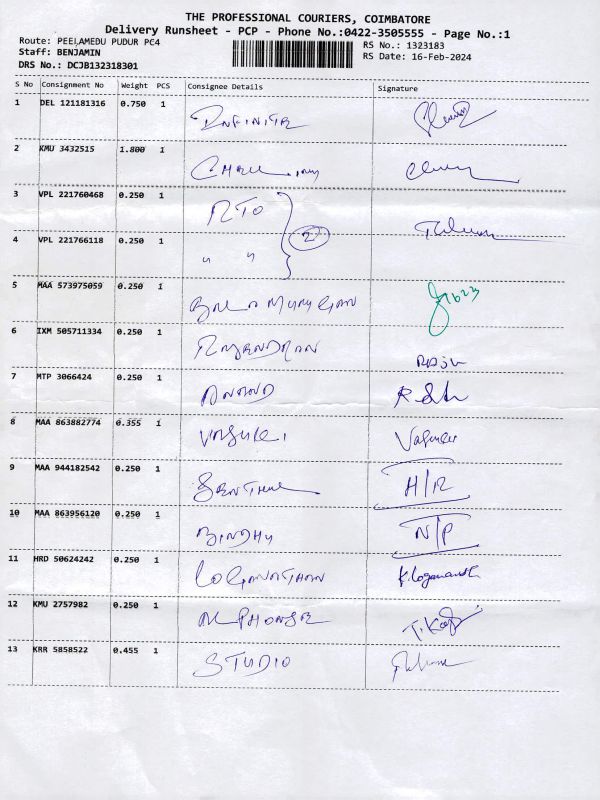 THE PROFESSIONAL COURIERS, COIMBATORE
Delivery Runsheet - PCP - Phone No.:0422-3505555 - Page No.:1
Route: PEELAMEDU PUDUR PC4
Staff: BENJAMIN
DRS No.: DCJB132318301
RS No.: 1323183
RS Date: 16-Feb-2024
S No Consignment No Weight PCS Consignee Details Signature
1 DEL 121181316 0.750 1 INFINITE
2 KMU 3432515 1.800 1
3 VPL 221760468 0.250 1 RTO 2
4 VPL 221766118 0.250 1 " "
5 MAA 573975059 0.250 1 BALA MURUGAN
6 IXM 505711334 0.250 1 RAJENDRAN Raju
7 MTP 3066424 0.250 1 ANAND
8 MAA 863882774 0.355 1 VASUKI
9 MAA 944182542 0.250 1 SENTHIL H/R
10 MAA 863956120 0.250 1 BINDHU N/P
11 HRD 50624242 0.250 1 LOGANATHAN K.Loganathan
12 KMU 2757982 0.250 1 ALPHONSE
13 KRR 5858522 0.455 1 STUDIO